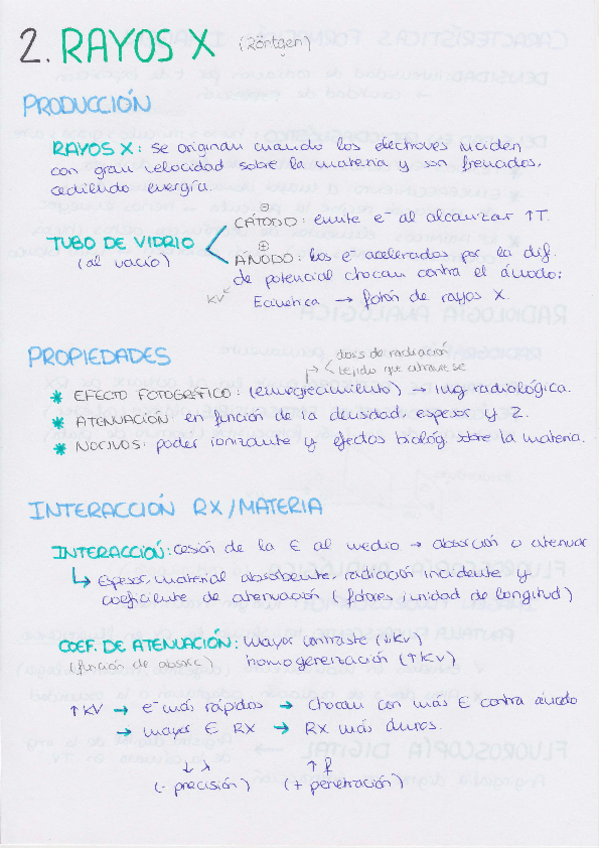 2. RAYOS X (Röntgen)
PRODUCCIÓN
RAYOS X: se originan cuando los electrones inciden
con gran velocidad sobre la materia y son frenados,
cediendo energía.
TUBO DE VIDRIO
(al vacío)
⊖
CÁTODO: emite e⁻ al alcanzar ↑T.
⊕
ÁNODO: los e⁻ acelerados por la dif.
de potencial chocan contra el ánodo:
KV
Ecinética → fotón de rayos X.
PROPIEDADES
dosis de radiación
tejido que atraviese
* EFECTO FOTOGRÁFICO: (ennegrecimiento) → Img radiológica.
* ATENUACIÓN: en función de la densidad, espesor y Z.
* NOCIVOS: poder ionizante y efectos biológ. sobre la materia.
INTERACCIÓN RX/MATERIA
INTERACCIÓN: cesión de la E al medio → absorción o atenuar
↳ Espesor, material absorbente, radiación incidente y
coeficiente de atenuación (fotones/unidad de longitud)
COEF. DE ATENUACIÓN: mayor contraste (↓KV)
(función de absorc) homogeneización (↑KV)
↑KV → e⁻ más rápidos → Chocan con más E contra ánodo
→ mayor E RX → RX más duros.
↓λ ↑f
(- precisión) (+ penetración)